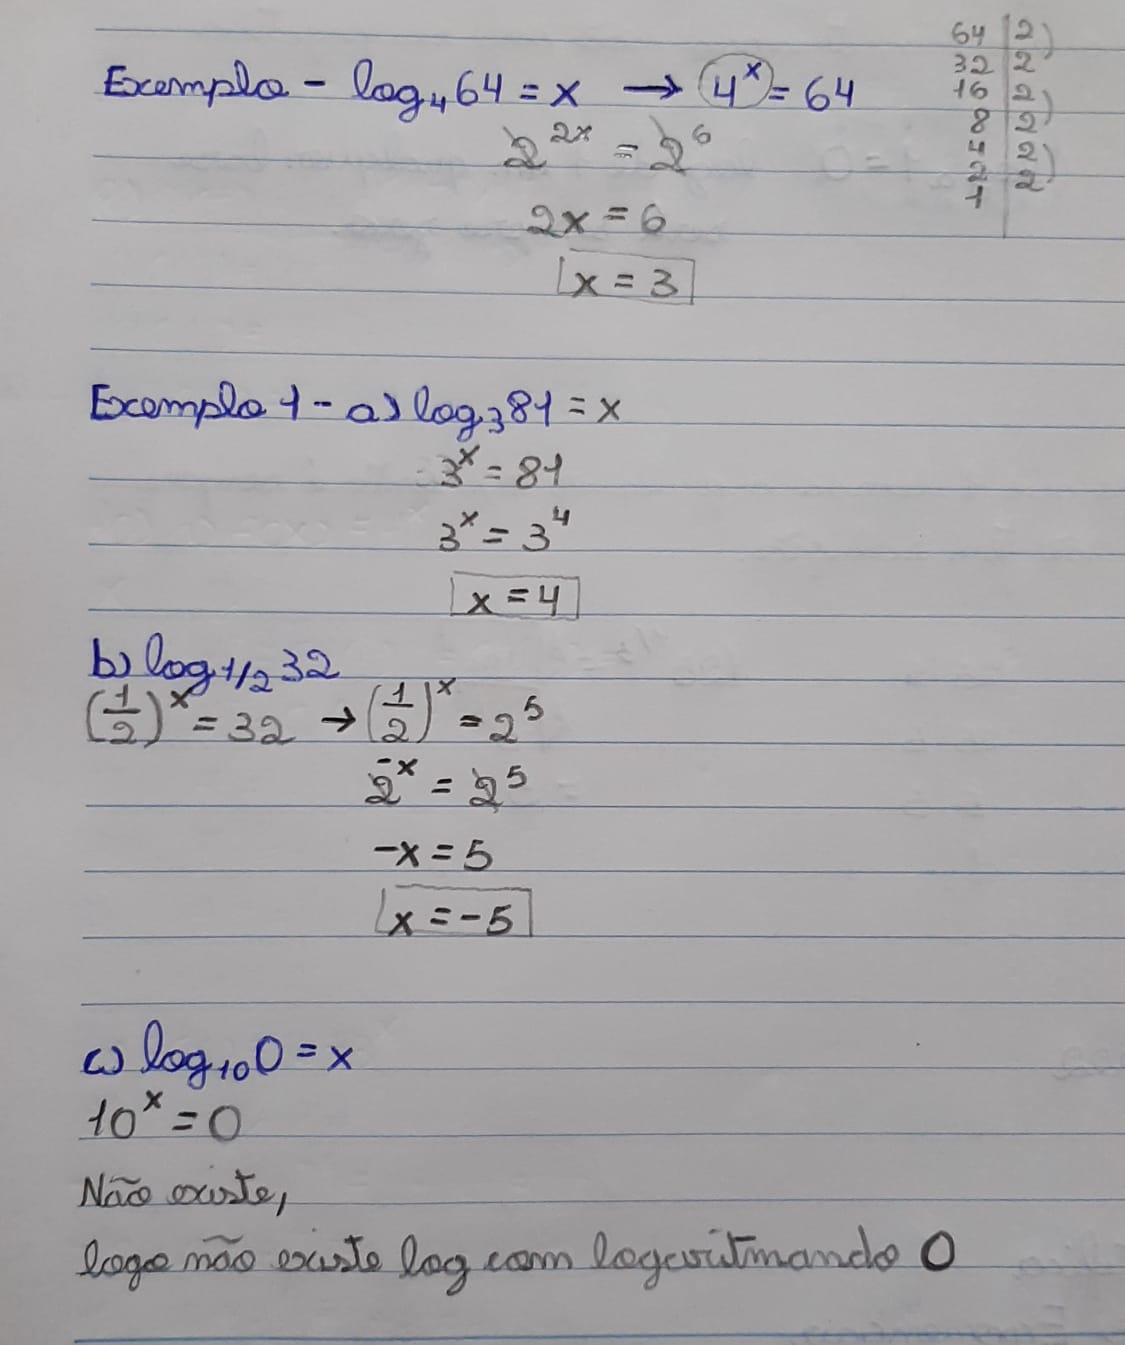 Exemplo - log₄64 = x → 4ˣ = 64
2²ˣ = 2⁶
2x = 6
x = 3
64 | 2
32 | 2
16 | 2
8 | 2
4 | 2
2 | 2
1
Exemplo 1 - a) log₃81 = x
3ˣ = 81
3ˣ = 3⁴
x = 4
b) log₁/₂32
(1/2)ˣ = 32 → (1/2)ˣ = 2⁵
2⁻ˣ = 2⁵
-x = 5
x = -5
c) log₁₀0 = x
10ˣ = 0
Não existe,
logo não existe log com logaritmando 0